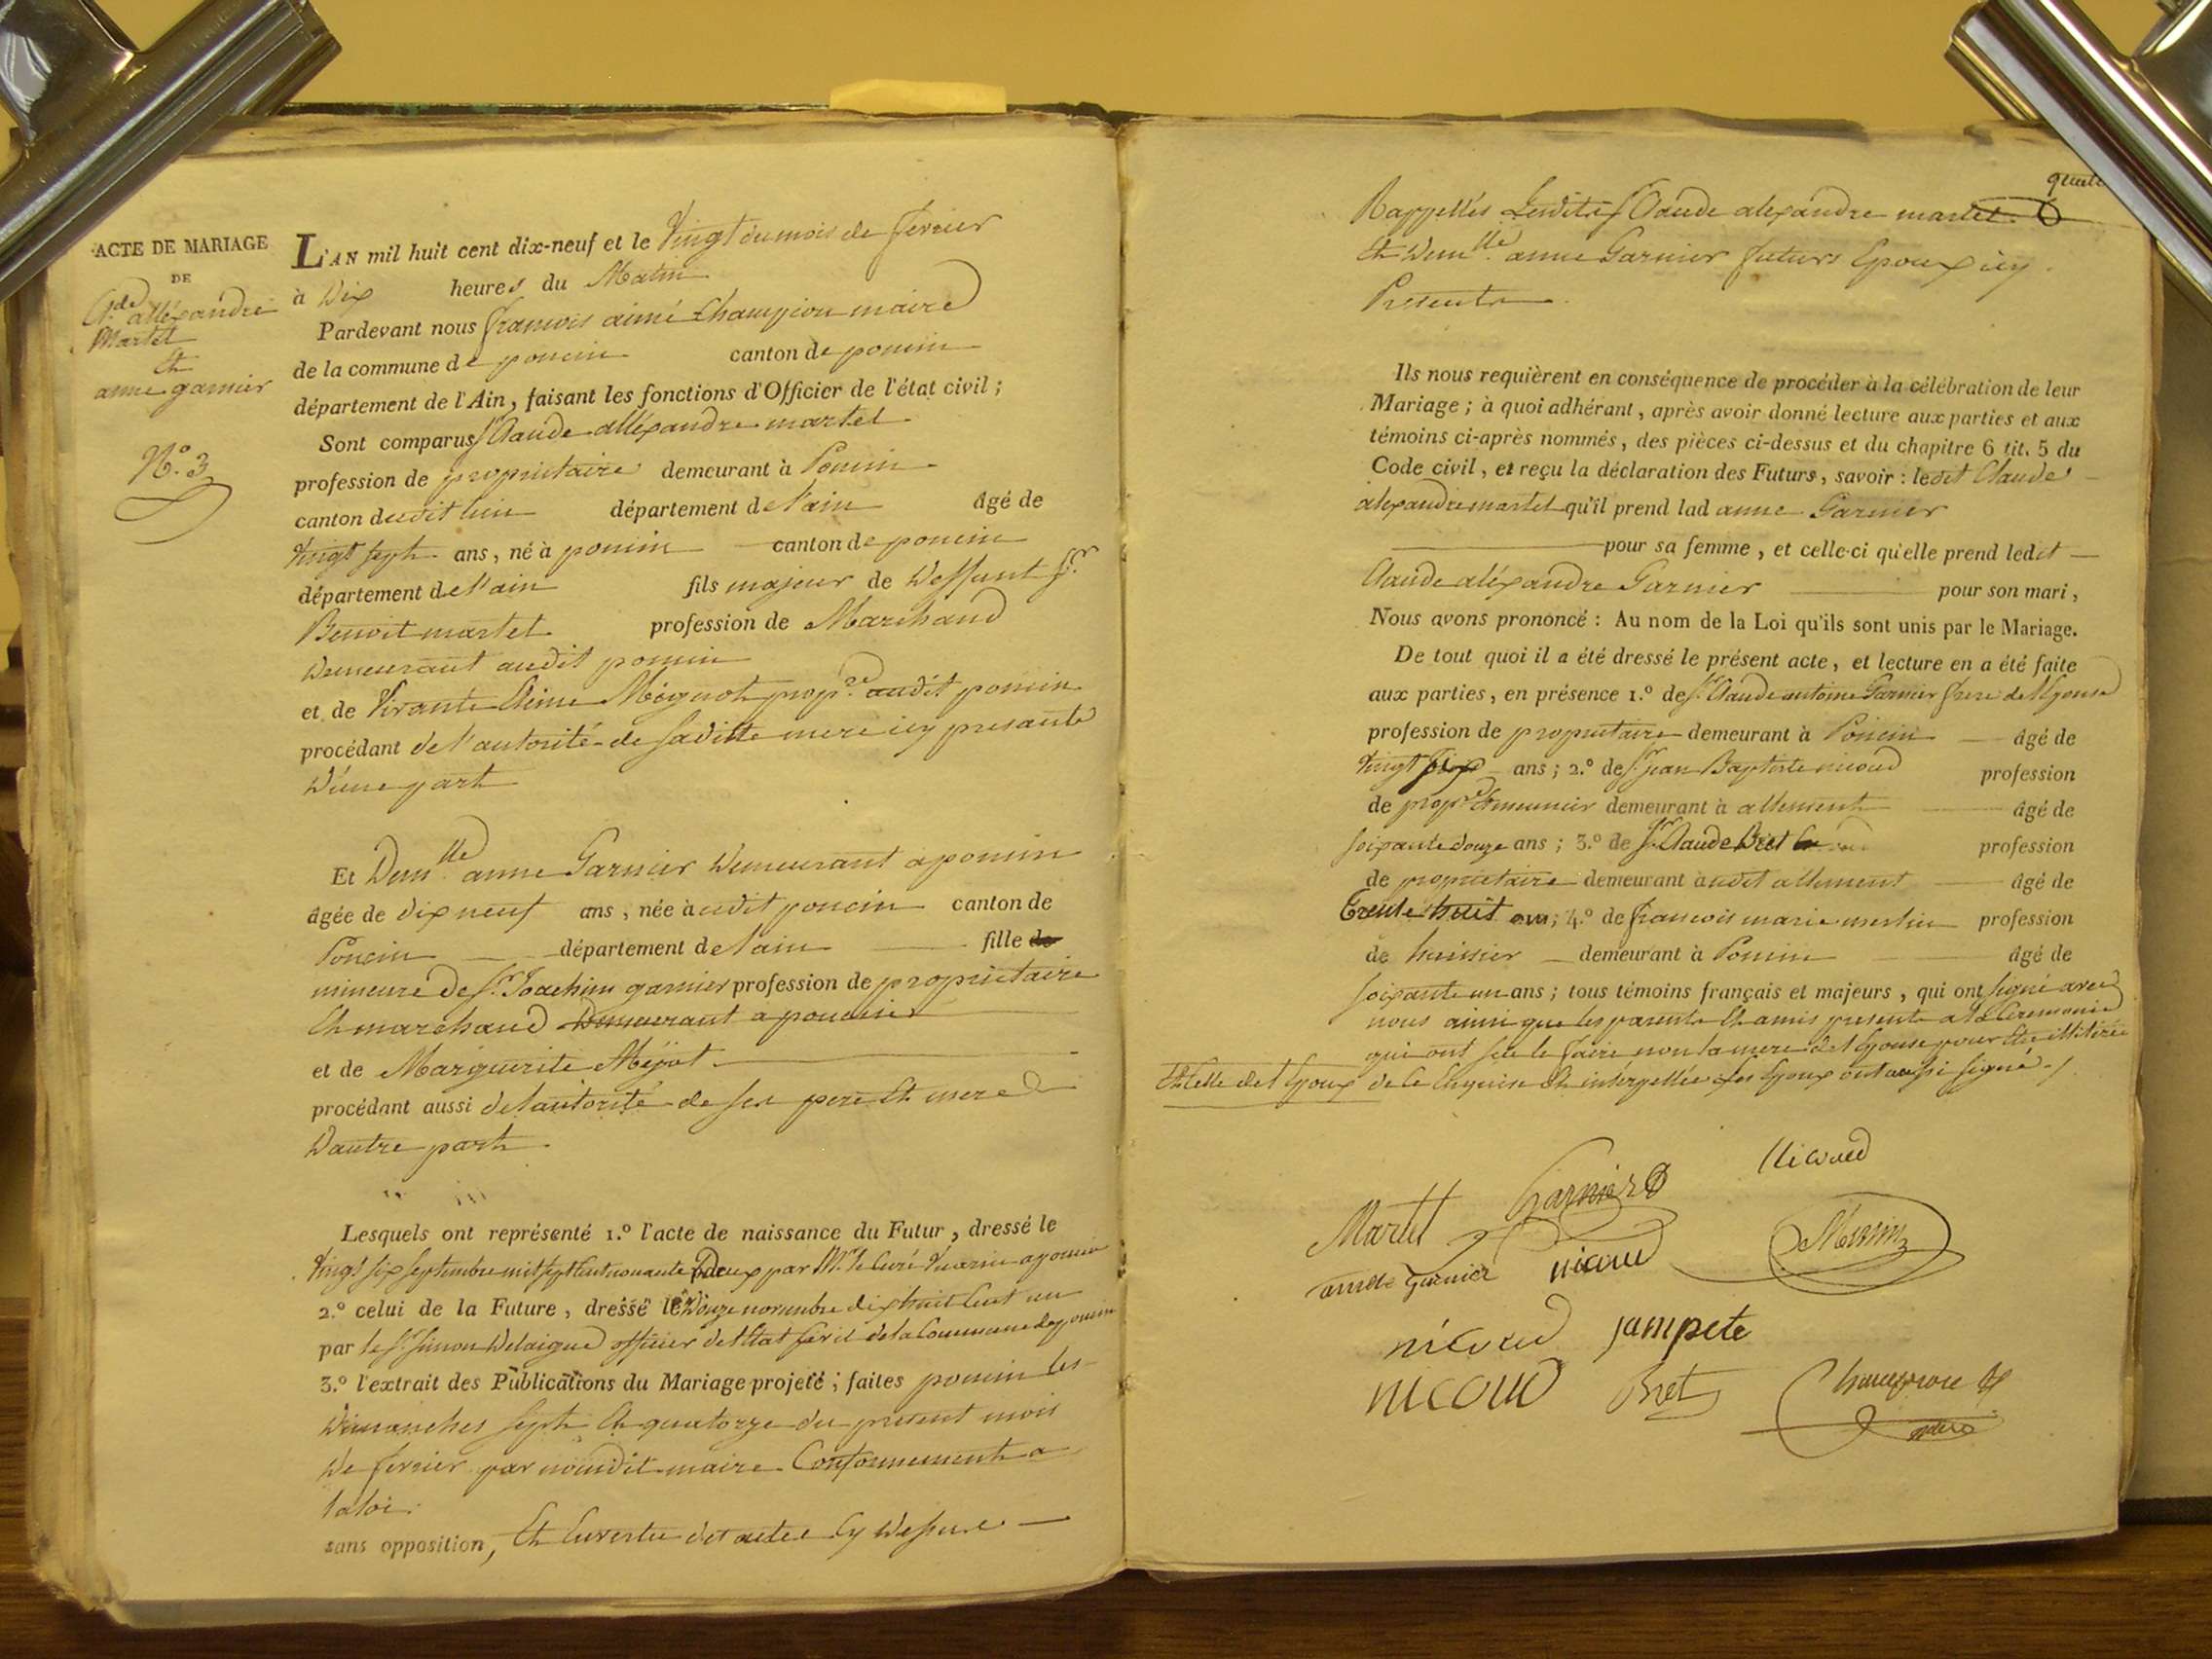 ACTE DE MARIAGE
DE
Cde alléxandre
Martel
Et
anne garnier
N.º 3
L'AN mil huit cent dix-neuf et le Vingt du mois de fevrier
à Dix heures du Matin
Pardevant nous francois aimé Champion maire
de la commune de poncin canton de poncin
département de l'Ain, faisant les fonctions d'Officier de l'état civil ;
Sont comparus Sr Claude alléxandre martel
profession de proprietaire demeurant à Poncin
canton dudit lieu département de l'ain âgé de
Vingt sept ans, né à poncin canton de poncin
département de l'ain fils majeur de Deffunt Sr.
Benoit martel profession de Marchand
Demeurant audit poncin
et de Vivante Mognot prop.re audit poncin
procédant de l'autorité de sa ditte mere icy presante
D'une part
Et Demlle anne Garnier Demeurant a poncin
âgée de dix neuf ans, née audit poncin canton de
Poncin département de l'ain fille de
mineure de Sr. Joachim garnier profession de proprietaire
Et marchand Demeurant a poncin
et de Marguerite Méjat
procédant aussi de l'autorité de ses pere Et mere
D'autre part
Lesquels ont représenté 1.º l'acte de naissance du Futur, dressé le
Vingt six septembre mil sept cent nonante deux par Mr. le Curé a poncin
2.º celui de la Future, dressé le Douze novembre dix huit Cent un
par le Sr. Simon Delaigue officier de l'Etat Civil de la Commune de poncin
3.º l'extrait des Publications du Mariage projeté ; faites poncin les
Dimanches sept Et quatorze du present mois
De fevrier par nousdit maire Conformement a
la loi.
sans opposition, Et Envertu des actes Cy Dessus
Rappellés Lesdits Sr Claude alexandre martel
Et Demlle. anne Garnier futurs Epoux icy
Presents
Ils nous requièrent en conséquence de procéder à la célébration de leur
Mariage ; à quoi adhérant, après avoir donné lecture aux parties et aux
témoins ci-après nommés, des pièces ci-dessus et du chapitre 6 tit. 5 du
Code civil, et reçu la déclaration des Futurs, savoir : ledit Claude
alexandre martel qu'il prend lad anne Garnier
pour sa femme, et celle-ci qu'elle prend ledit
Claude aléxandre Garnier pour son mari,
Nous avons prononcé : Au nom de la Loi qu'ils sont unis par le Mariage.
De tout quoi il a été dressé le présent acte, et lecture en a été faite
aux parties, en présence 1.º de Sr. Claude antoine Garnier frere de l'Epouse
profession de proprietaire demeurant à Poncin âgé de
Vingt six ans ; 2.º de Sr. jean Baptiste nicoud profession
de prop.re Et meunier demeurant à allement âgé de
soixante douze ans ; 3.º de Sr Claude Bret profession
de proprietaire demeurant audit allement âgé de
Trente huit ans ; 4.º de francois marie mersin profession
de huissier demeurant à Poncin âgé de
soixante un ans ; tous témoins français et majeurs, qui ont signé avec
nous ainsi que les parents Et amis presents a la Ceremonie
qui ont seu le faire non la mere de l'Epouse pour Etre illitérée
Et Celle de l'Epoux de Ce Enquise Et interpellée les Epoux ont aussi signé
Martel Garnier Nicoud
annette garnier nicoud Mersin
nicoud jampete
nicoud Bret Champion
maire